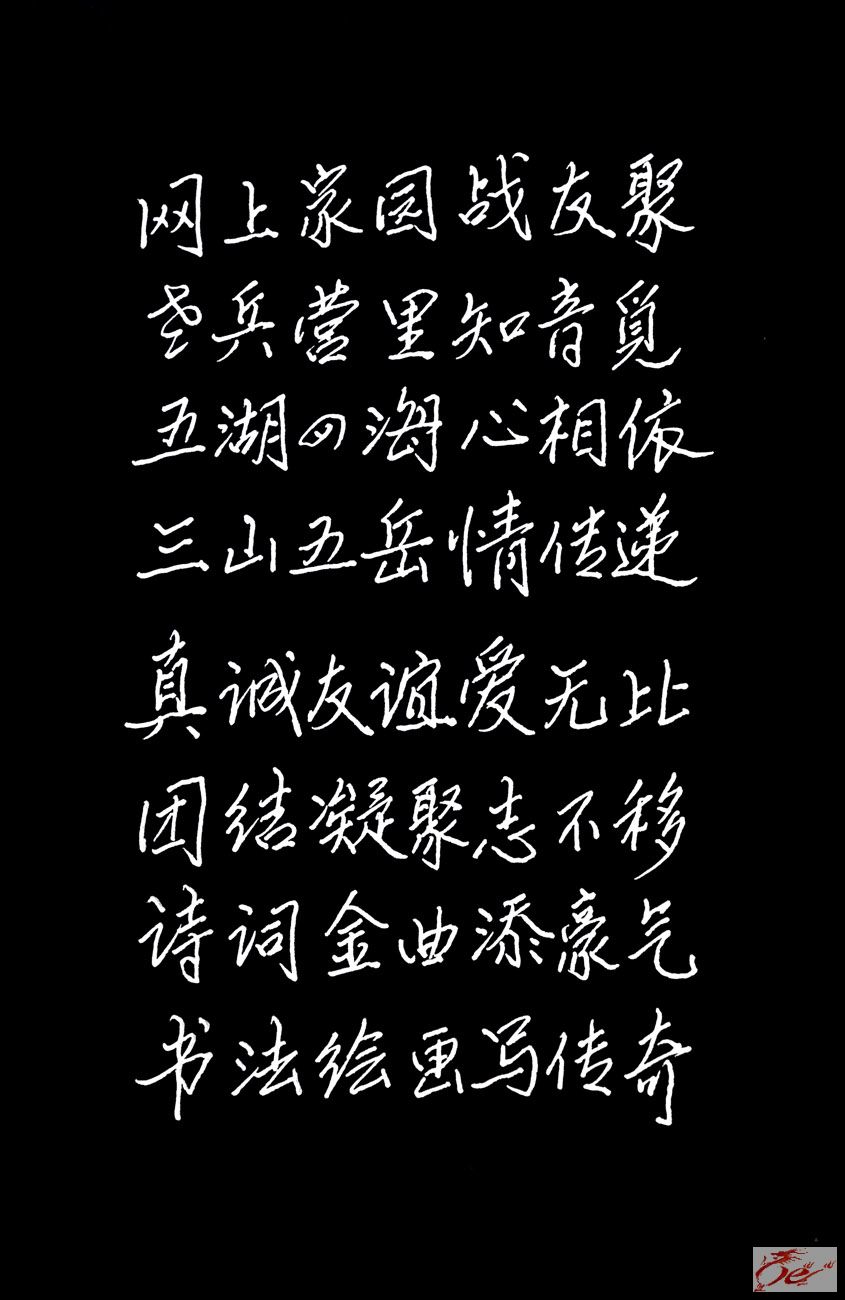 网上家园战友聚
老兵营里知音觅
五湖四海心相依
三山五岳情传递
真诚友谊爱无比
团结凝聚志不移
诗词金曲添豪气
书法绘画写传奇